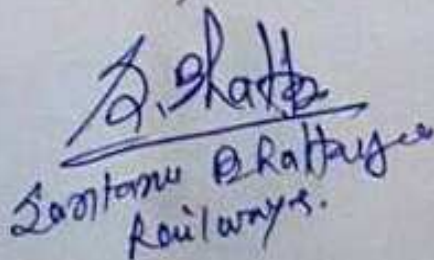 S. Bhatta
Santanu Bhattacharjee
Railways.